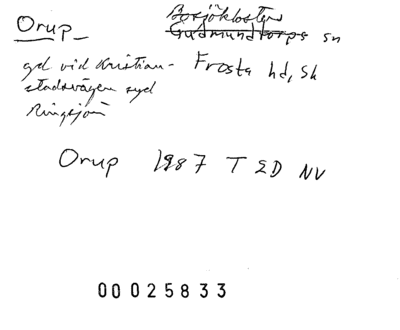 Orup
Bosjökloster
Gudmundtorps sn
gd vid Kristian-
stadsvägen syd
Ringsjön
Frosta hd, Sk
Orup 1987 T ED NV
00025833